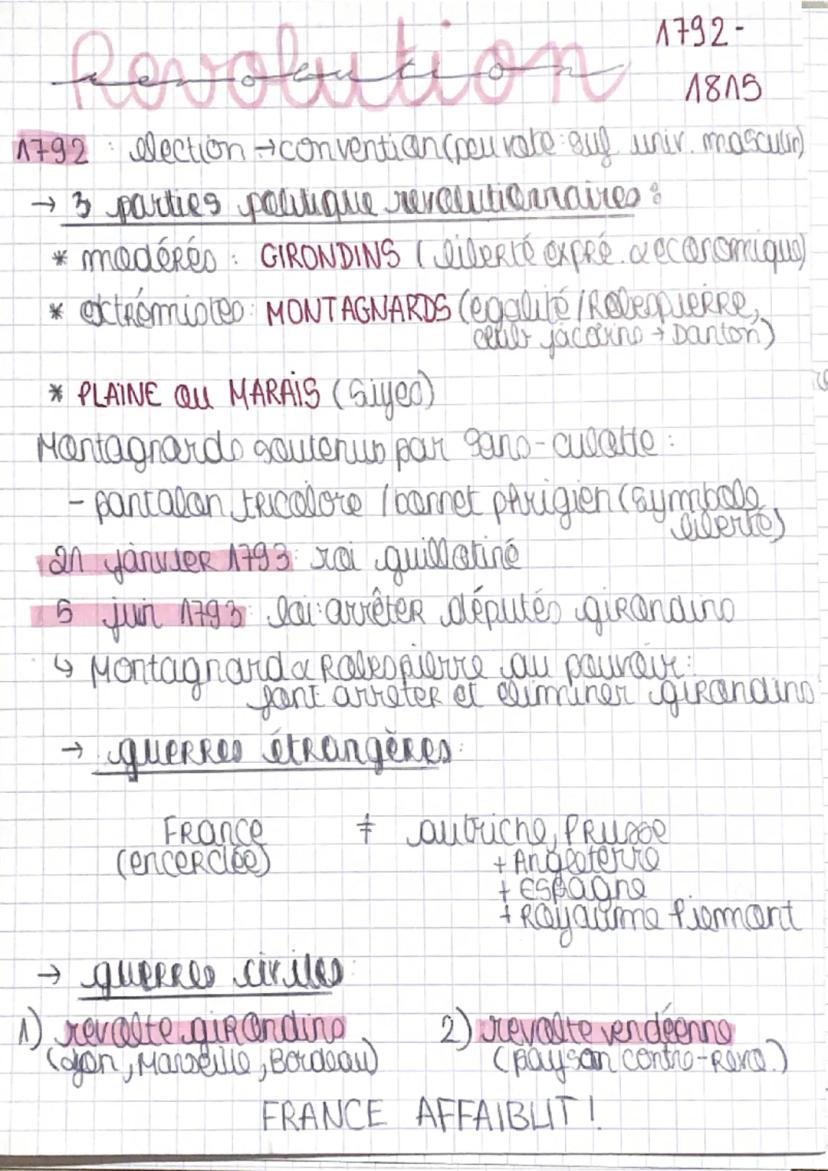 Revolution
revolution
1792-
1815
1792 : election → convention (peu vote: suf. univ. masculin)
→ 3 parties politique revolutionnaires :
* modérés : GIRONDINS (liberté expré. & economique)
* extrémistes: MONTAGNARDS (egalité/Robespierre,
club jacobins → Danton)
* PLAINE OU MARAIS (Siyes)
Montagnards soutenus par sans-culotte :
- pantalon tricolore / bonnet phrigien (symbole
liberté)
21 janvier 1793: roi guillotiné
5 juin 1793: loi: arrêter députés girondins
↳ Montagnard & Robespierre au pouvoir:
font arreter et eliminer girondins
→ guerres étrangères:
France ≠ autriche, Prusse
(encerclée) + Angleterre
+ Espagne
+ Royaume Piemont
→ guerres civiles:
1) revolte girondins 2) revolte vendéenne
(Lyon, Marseille, Bordeau) (paysan contre-revo.)
FRANCE AFFAIBLIT !